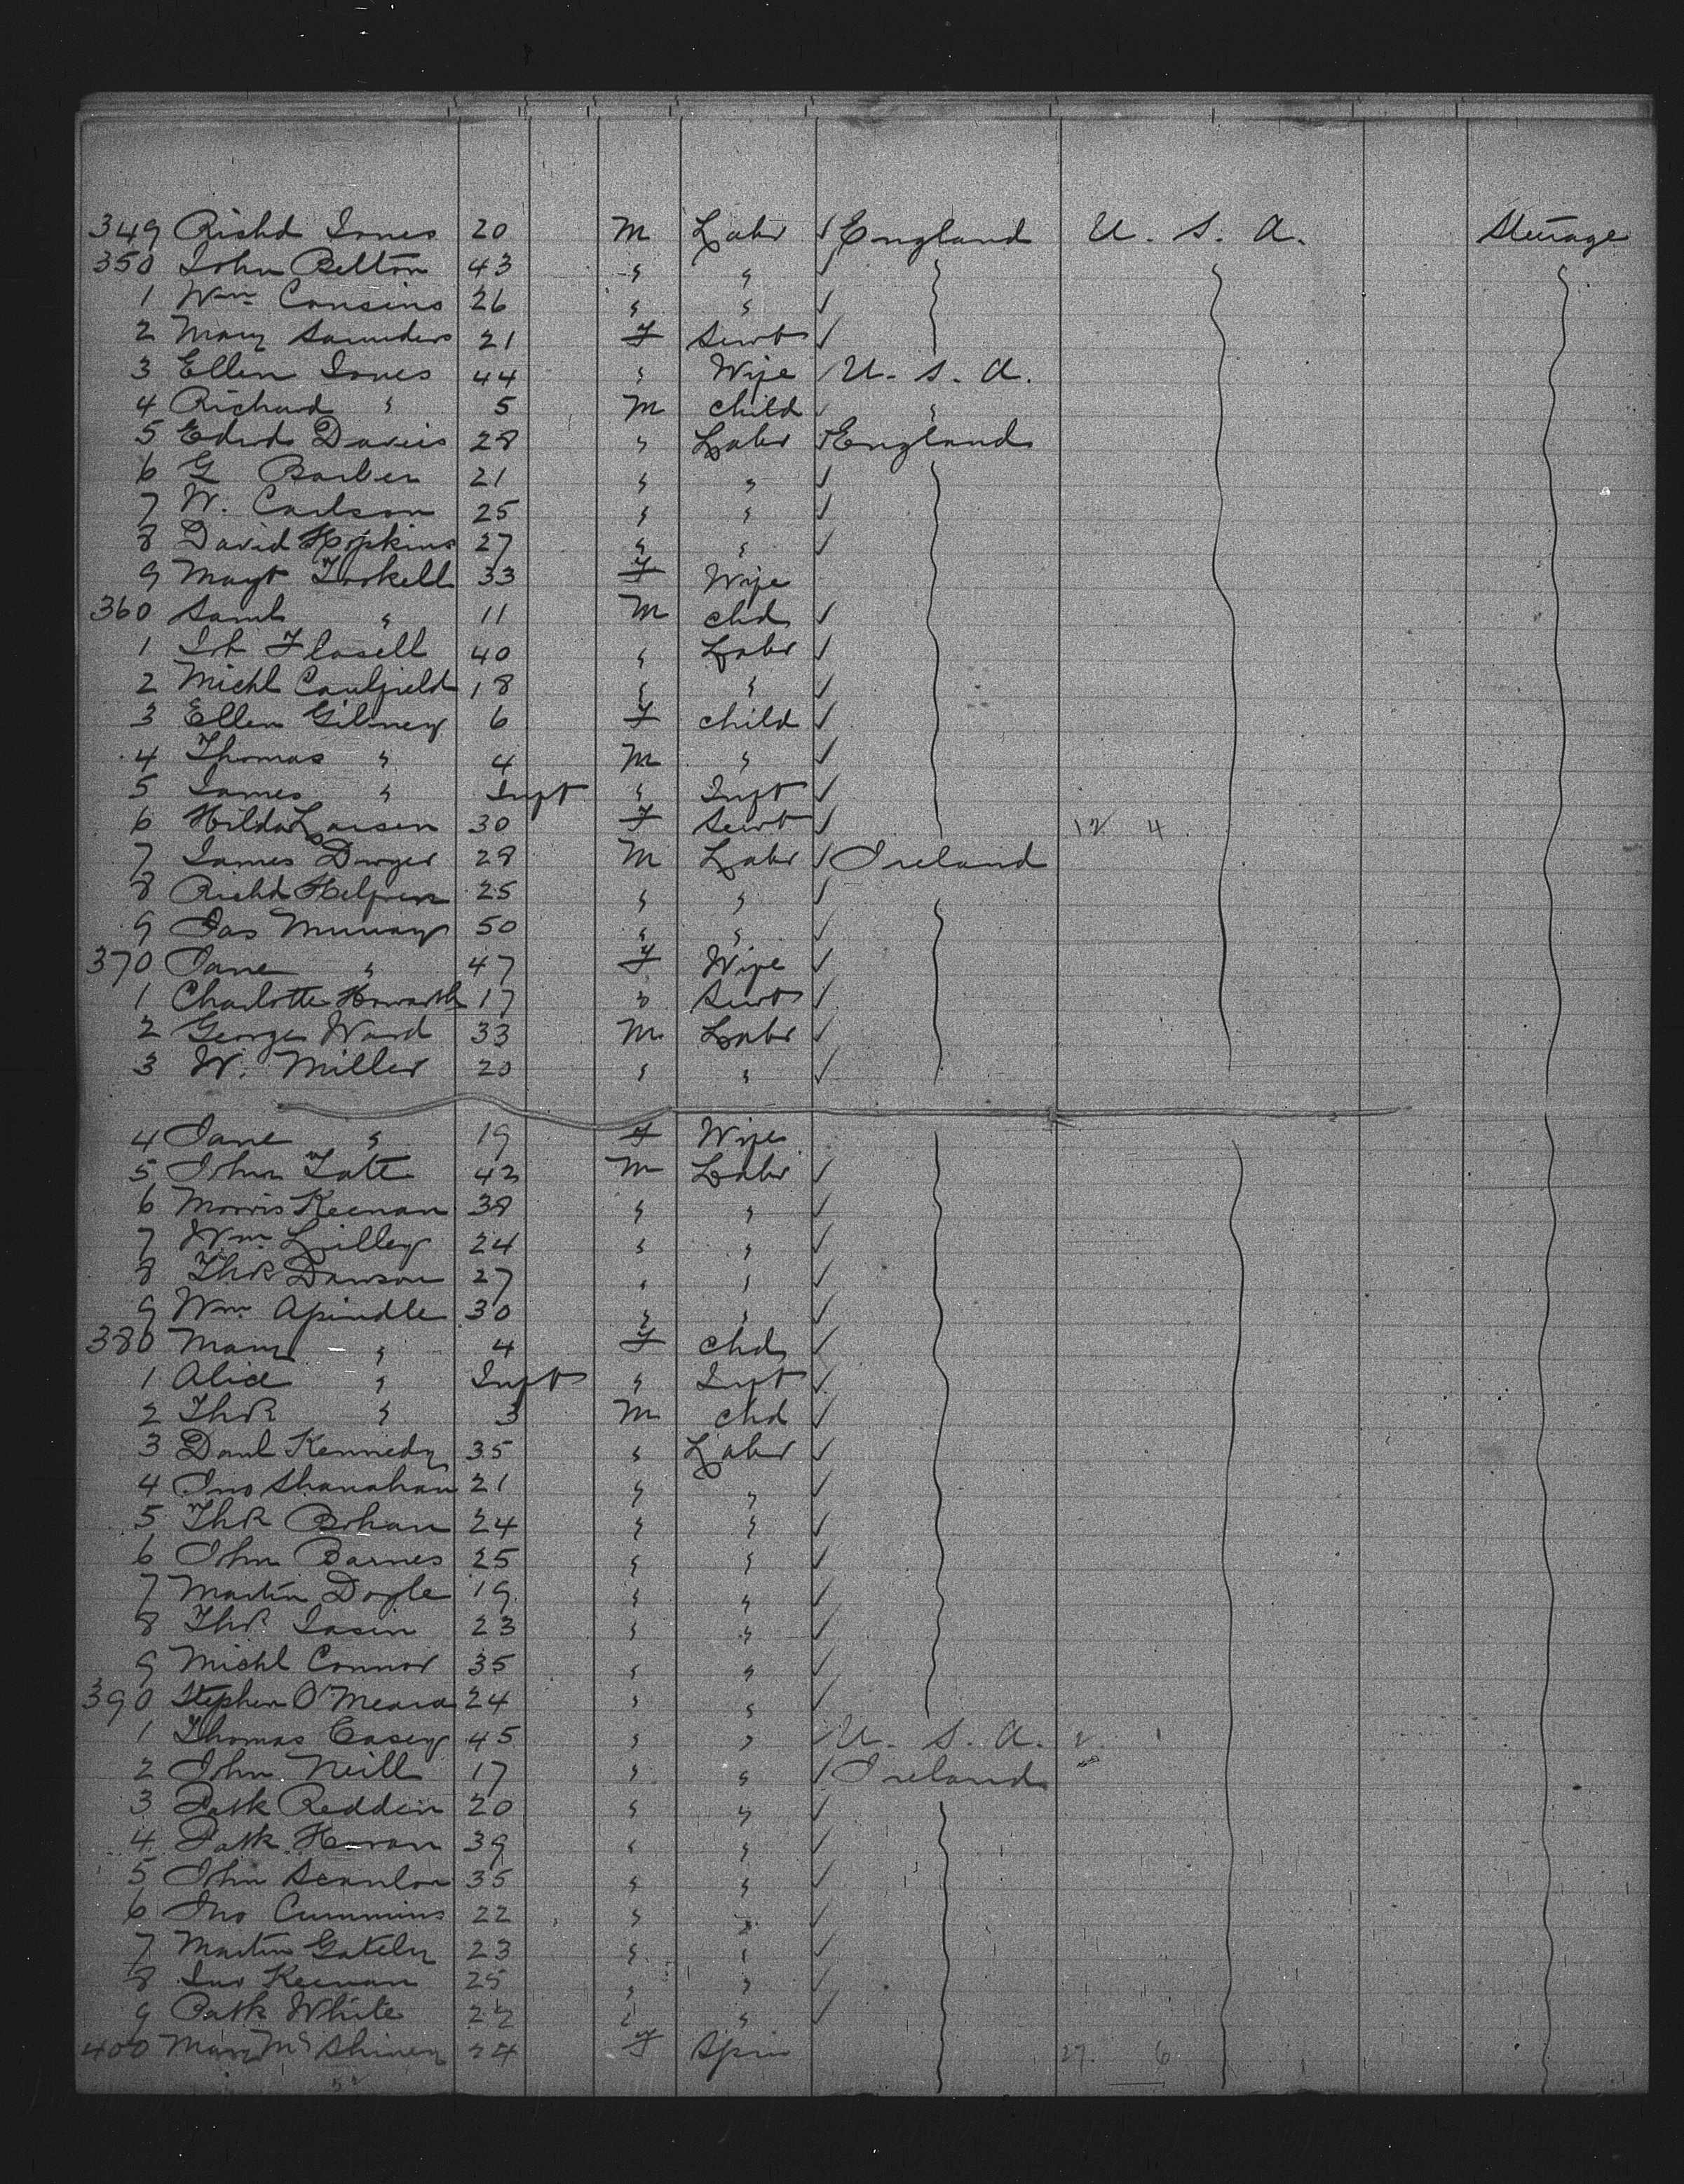 349 Richd Jones 20 M Labr ✓ England U. S. A. Steerage
350 John Belton 43 " " ✓
1 Wm Cousins 26 " " ✓
2 Mary Saunders 21 F Servt ✓
3 Ellen Jones 44 " Wife ✓ U. S. A.
4 Richard " 5 M Child ✓ "
5 Edwd Davies 28 " Labr ✓ England
6 G Barber 21 " " ✓
7 W. Carlson 25 " " ✓
8 David Hopkins 27 " " ✓
9 Magt Taskell 33 F Wife
360 Saml " 11 M Chd ✓
1 40 " Labr ✓
2 Michl Caulfield 18 " " ✓
3 Ellen Gilmey 6 F Child ✓
4 Thomas " 4 M " ✓
5 James " Inft " Inft ✓
6 Hilda Larsen 30 F Servt ✓ 12 4
7 James Dwyer 28 M Labr ✓ Ireland
8 Richd 25 " " ✓
9 Jas Murray 50 " " ✓
370 Jane " 47 F Wife ✓
1 Charlotte Howarth 17 " Servt ✓
2 George Ward 33 M Labr ✓
3 W. Miller 20 " " ✓
4 Jane " 19 F Wife
5 John Tate 42 M Labr ✓
6 Morris Keenan 38 " " ✓
7 Wm Lilley 24 " " ✓
8 Thos Dawson 27 " " ✓
9 Wm Apindle 30 " " ✓
380 Mary " 4 F Chd ✓
1 Alice " Inft " Inft ✓
2 Thos " 3 M Chd ✓
3 Danl Kennedy 35 " Labr ✓
4 Jno Shanahan 21 " " ✓
5 Thos Bohan 24 " " ✓
6 John Barnes 25 " " ✓
7 Martin Doyle 19 " " ✓
8 Thos 23 " " ✓
9 Michl Connor 35 " " ✓
390 Stephen O'Meara 24 " " ✓
1 Thomas Casey 45 " " ✓ U. S. A.
2 John Neill 17 " " ✓ Ireland
3 Patk Reddin 20 " " ✓
4 Patk Horan 39 " " ✓
5 John Scanlon 35 " " ✓
6 Jno Cummins 22 " " ✓
7 Martin Gately 23 " " ✓
8 Jno Keenan 25 " " ✓
9 Patk White 22 " " ✓
400 Mary 24 F Spin 27 6